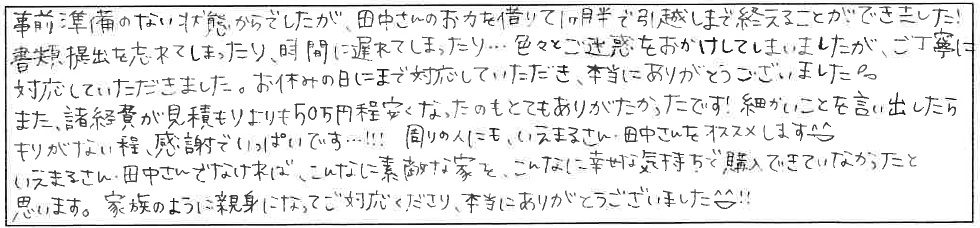 事前準備のない状態からでしたが、田中さんのお力を借りて1ヶ月半で引越しまで終えることができました!
書類提出を忘れてしまったり、時間に遅れてしまったり…色々とご迷惑をおかけしてしまいましたが、ご丁寧に
対応していただきました。お休みの日にまで対応していただき、本当にありがとうございました。
また、諸経費が見積もりよりも50万円程安くなったのもとてもありがたかったです!細かいことを言い出したら
キリがない程、感謝でいっぱいです…!!! 周りの人にも、いえまるさん・田中さんをオススメします^^
いえまるさん・田中さんでなければ、こんなに素敵な家を、こんなに幸せな気持ちで購入できていなかったと
思います。家族のように親身になってご対応くださり、本当にありがとうございました^^!!